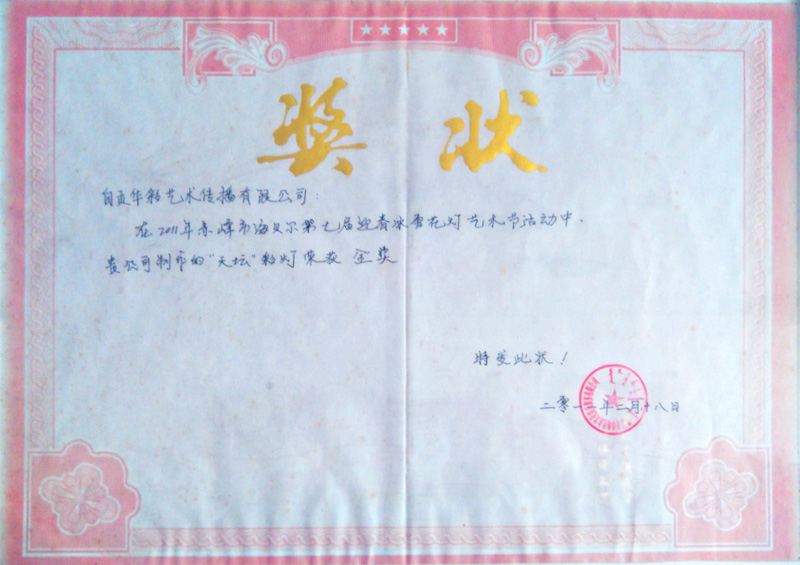 奖状
自贡华彩艺术传播有限公司：
在2011年赤峰市海贝尔第七届迎春冰雪花灯艺术节活动中，
贵公司制作的“天坛”彩灯荣获 金奖
特发此状！
二零一一年二月十八日